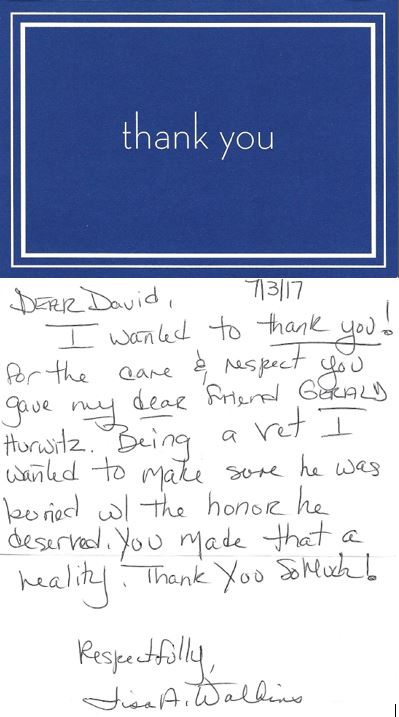 thank you
7/3/17
Dear David,
I wanted to thank you!
for the care & respect you
gave my dear friend Gerald
Hurwitz. Being a vet I
wanted to make sure he was
buried w/ the honor he
deserved. You made that a
reality. Thank You So Much!
Respectfully,
Lisa A.